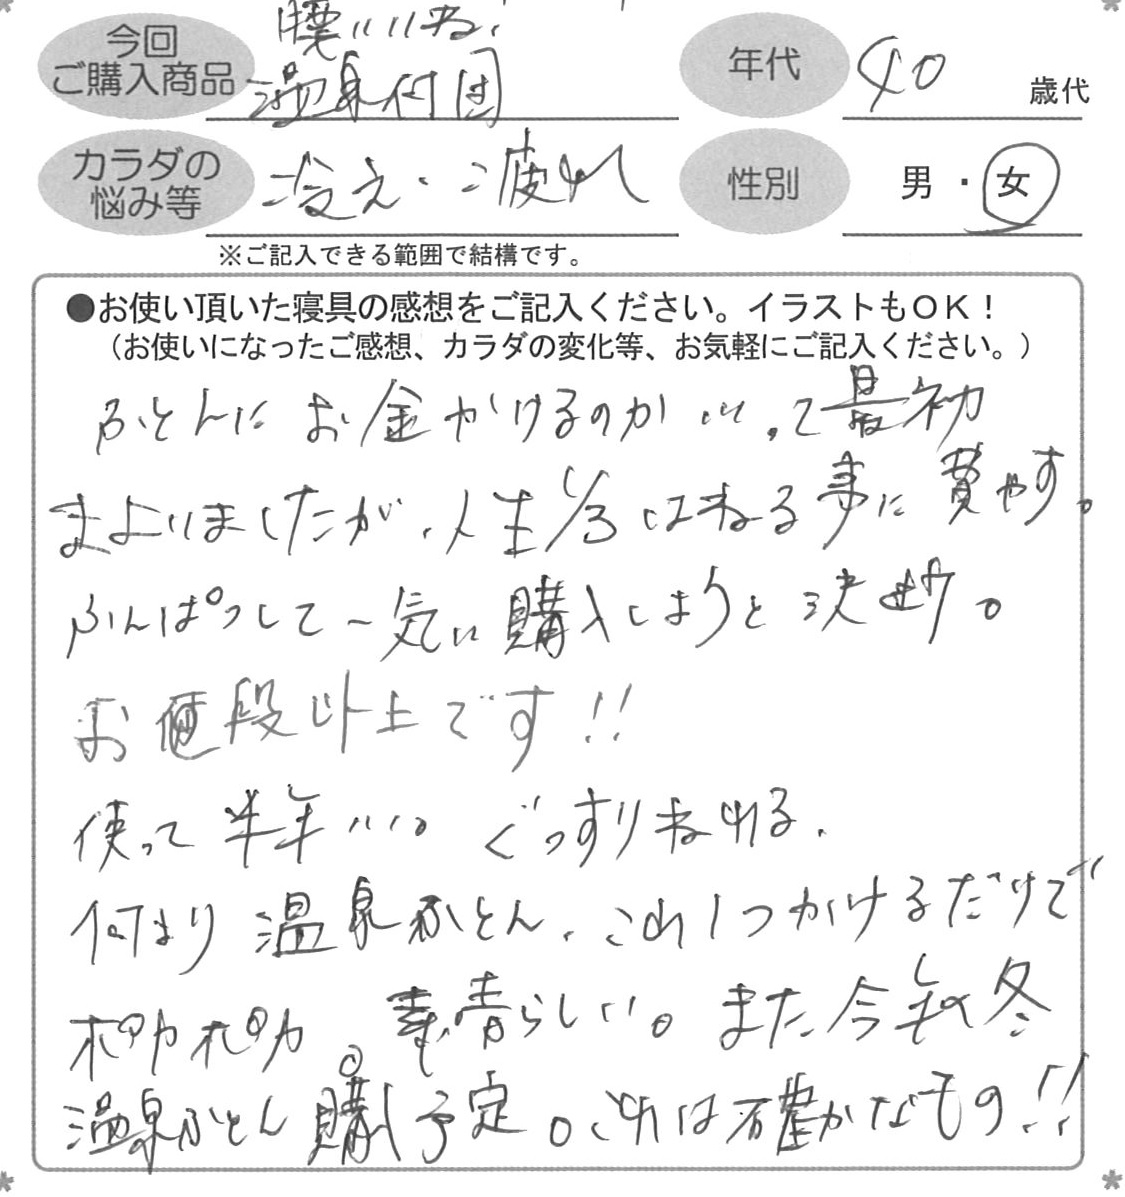 腰いいね!
今回
ご購入商品
温泉付団
年代
40
歳代
カラダの
悩み等
冷え・疲れ
性別
男・女
※ご記入できる範囲で結構です。
●お使い頂いた寝具の感想をご記入ください。イラストもOK!
(お使いになったご感想、カラダの変化等、お気軽にご記入ください。)
ふとんにお金かけるのか…って最初
まよいましたが、人生1/3はねる事に費やす。
ふんぱつして一気に購入しようと決断。
お値段以上です!!
使って半年… ぐっすりねれる。
何より温泉ふとん、これ1つかけるだけで
ポカポカ。素晴らしい。また今秋冬
温泉ふとん購入予定。これは確かなもの!!